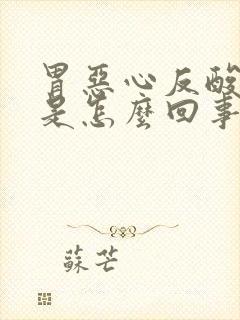 胃惡心反酸
是怎麼回事
蘇芒